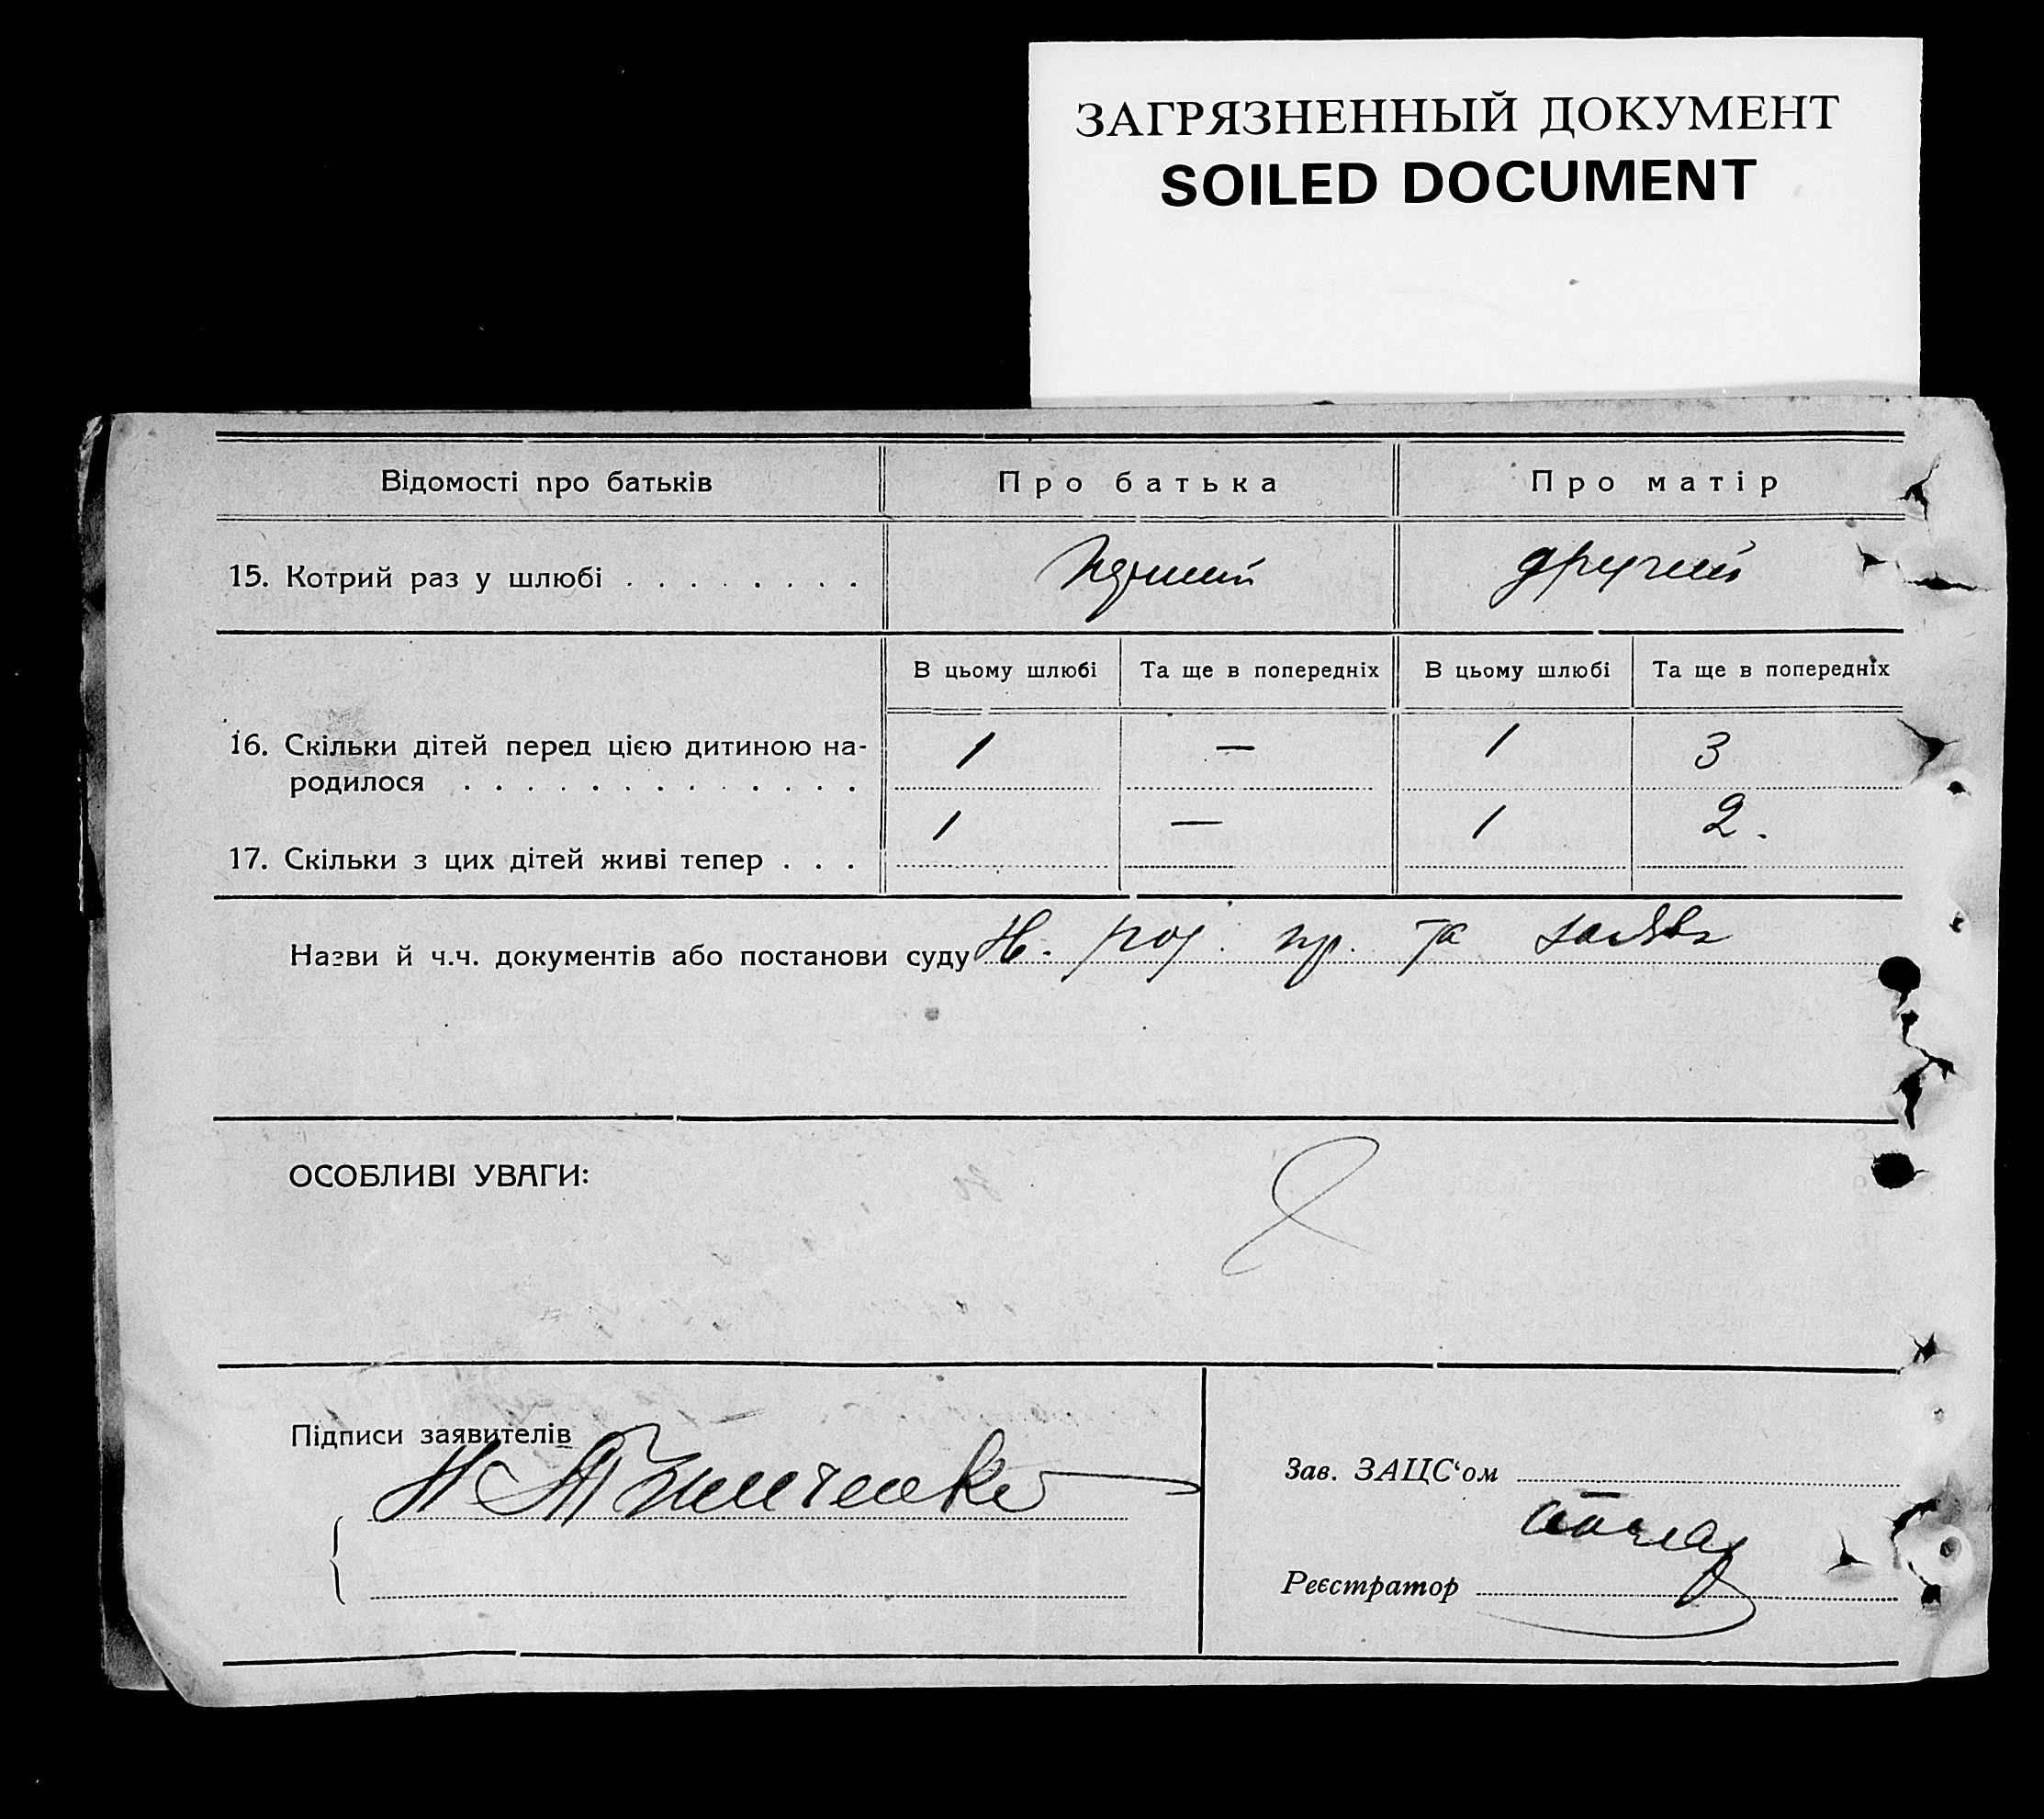 ЗАГРЯЗНЕННЫЙ ДОКУМЕНТ
SOILED DOCUMENT
Відомості про батьків Про батька Про матір
15. Котрий раз у шлюбі . . . . . . . . другий
В цьому шлюбі Та ще в попередніх В цьому шлюбі Та ще в попередніх
16. Скільки дітей перед цією дитиною на-
родилося . . . . . . . . . . . . . 1 — 1 3
17. Скільки з цих дітей живі тепер . . . 1 — 1 2.
Назви й ч.ч. документів або постанови суду Н. пр. та
ОСОБЛИВІ УВАГИ:
Підписи заявителів
Зав. ЗАЦС‘ом
Реєстратор